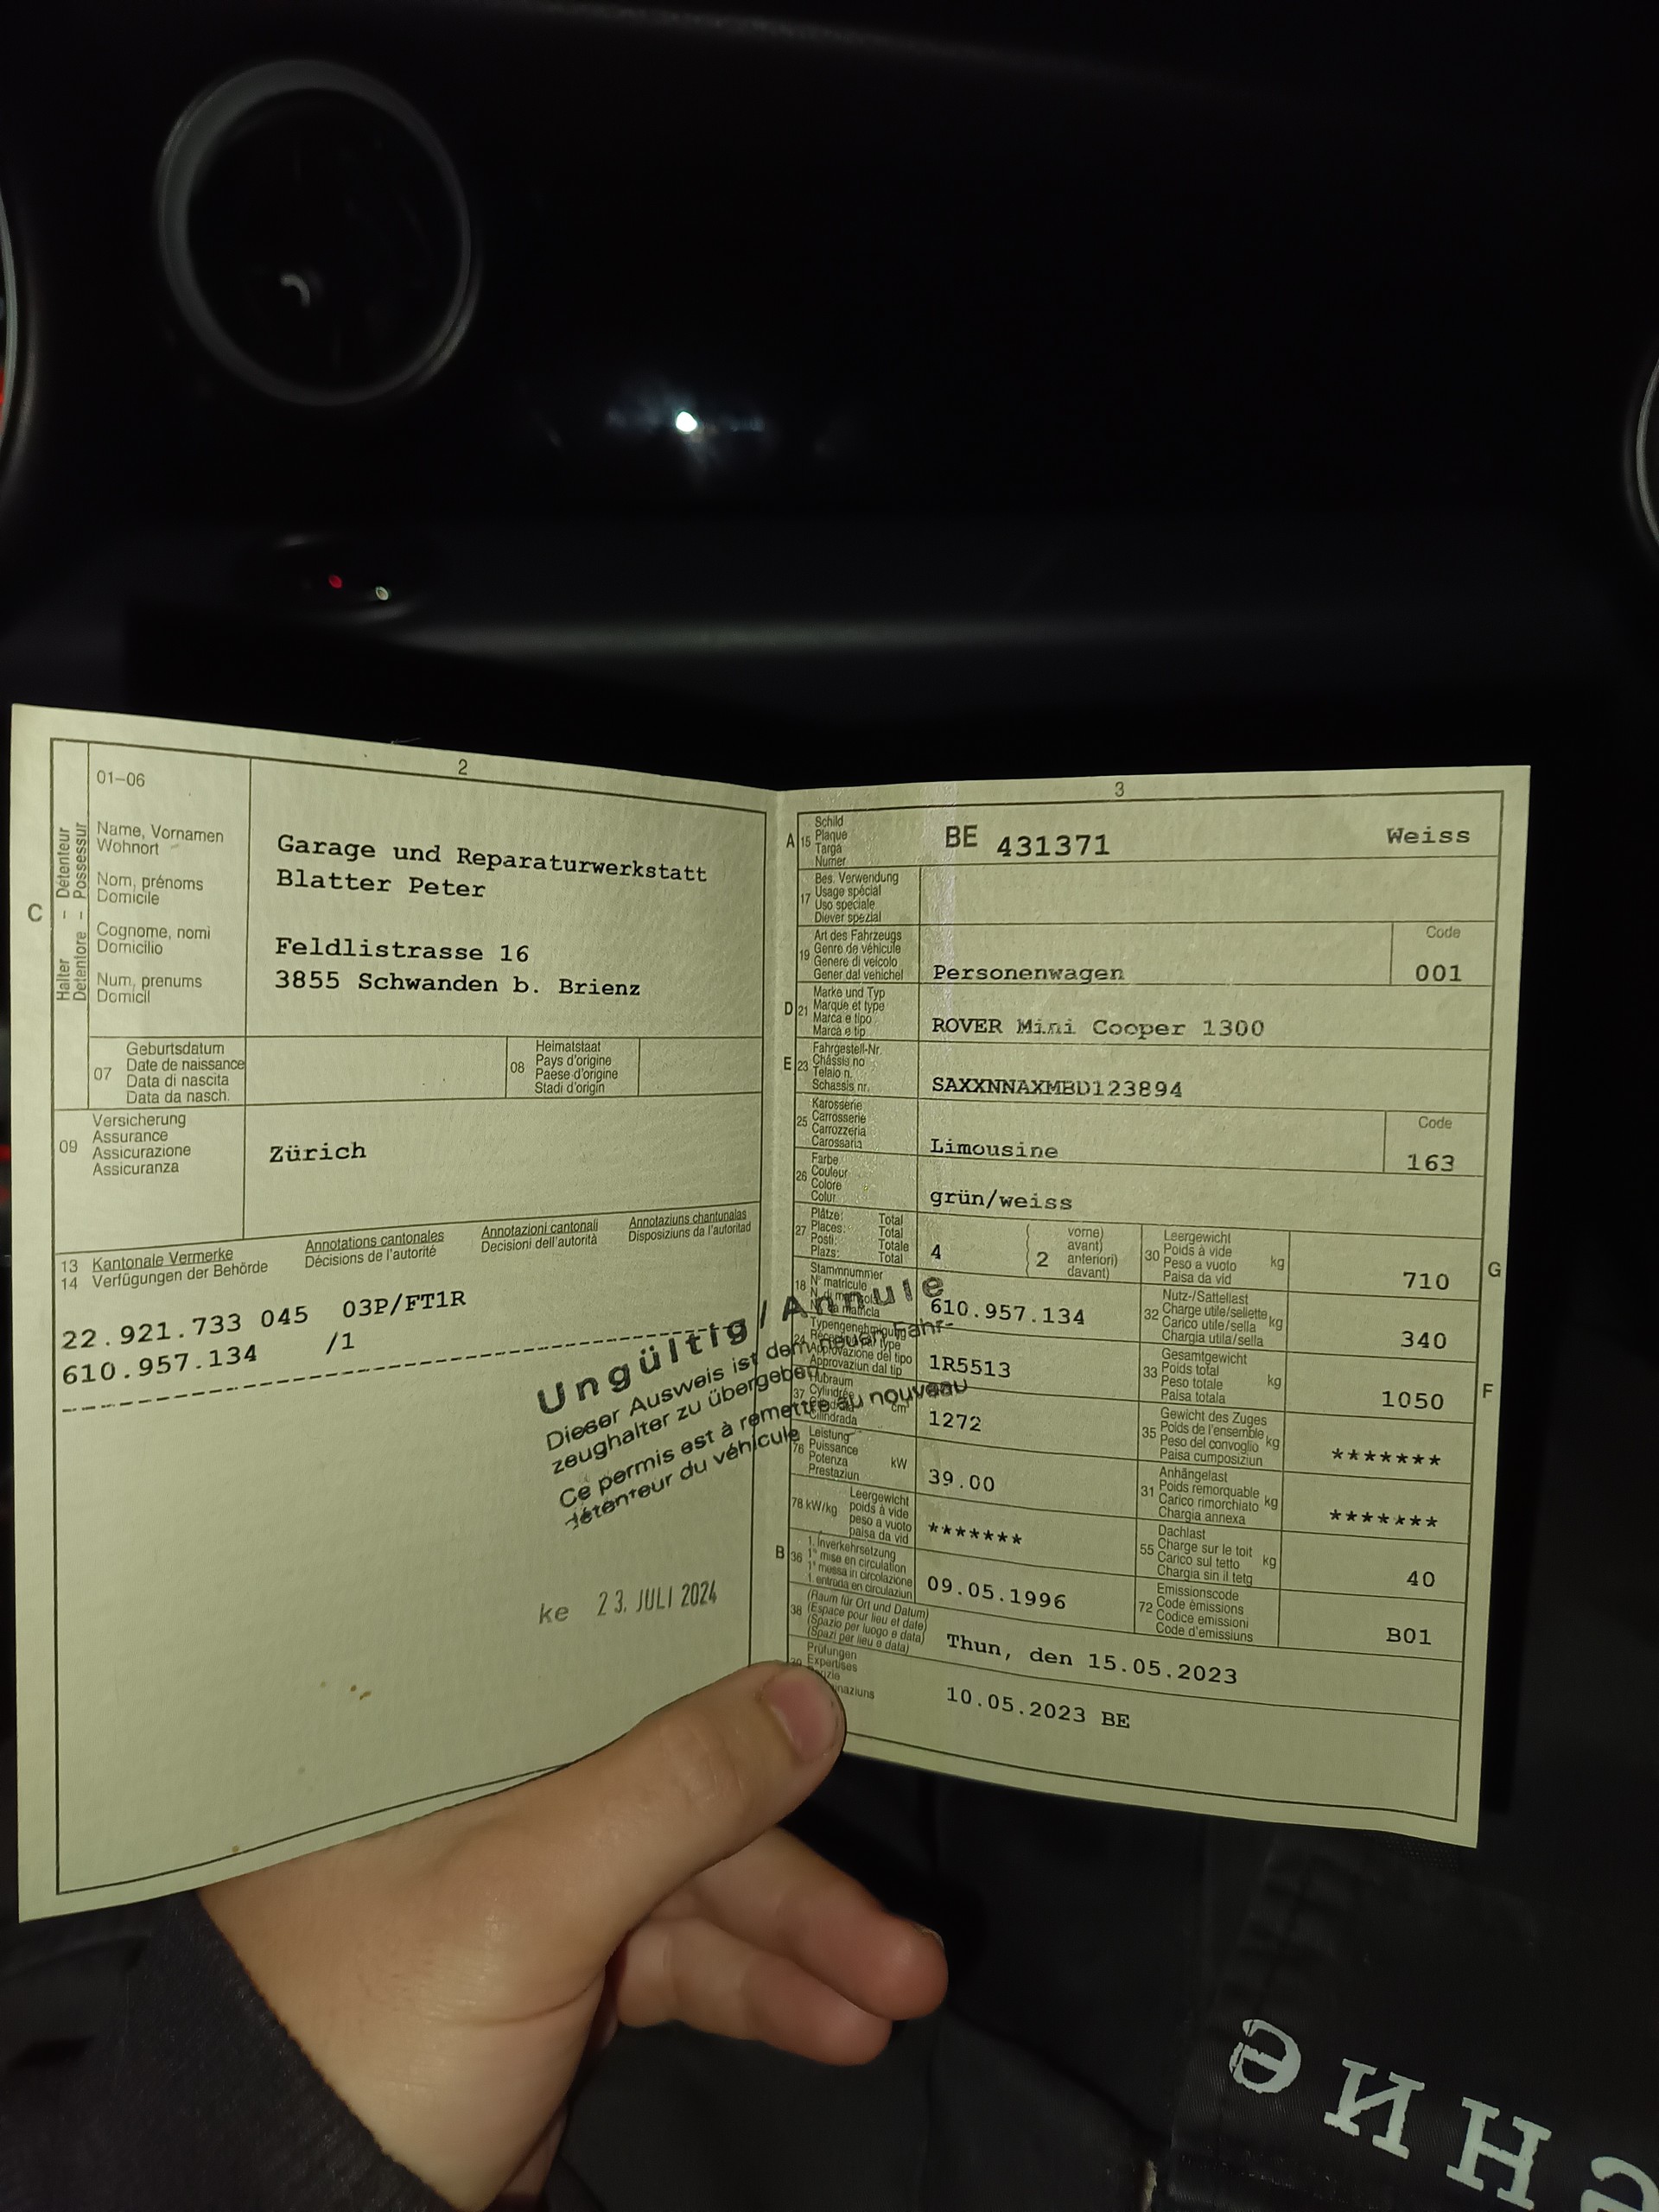 2
01–06
Name, Vornamen
Wohnort
Nom, prénoms
Domicile
Cognome, nomi
Domicilio
Num, prenums
Domicil
C
Halter – Détenteur
Detentore – Possessur
Garage und Reparaturwerkstatt
Blatter Peter
Feldlistrasse 16
3855 Schwanden b. Brienz
07
Geburtsdatum
Date de naissance
Data di nascita
Data da nasch.
08
Heimatstaat
Pays d'origine
Paese d'origine
Stadi d'origin
09
Versicherung
Assurance
Assicurazione
Assicuranza
Zürich
13 Kantonale Vermerke
14 Verfügungen der Behörde
Annotations cantonales
Décisions de l'autorité
Annotazioni cantonali
Decisioni dell'autorità
Annotaziuns chantunalas
Disposiziuns da l'autoritad
22.921.733 045 03P/FT1R
610.957.134 /1
Ungültig / Annule
Dieser Ausweis ist dem neuen Fahr-
zeughalter zu übergeben
Ce permis est à remettre au nouveau
détenteur du véhicule
ke 23. JULI 2024
3
A 15
Schild
Plaque
Targa
Numer
BE 431371 Weiss
17
Bes. Verwendung
Usage spécial
Uso speciale
Diever spezial
19
Art des Fahrzeugs
Genre de véhicule
Genere di veicolo
Gener dal vehichel
Personenwagen
Code
001
D 21
Marke und Typ
Marque et type
Marca e tipo
Marca e tip
ROVER Mini Cooper 1300
E 23
Fahrgestell-Nr.
Châssis no
Telaio n.
Schassis nr.
SAXXNNAXMBD123894
25
Karosserie
Carrosserie
Carrozzeria
Carossaria
Limousine
Code
163
26
Farbe
Couleur
Colore
Colur
grün/weiss
27
Plätze: Total
Places: Total
Posti: Totale
Plazs: Total
4
2
vorne)
avant)
anteriori)
davant)
30
Leergewicht
Poids à vide kg
Peso a vuoto
Paisa da vid
710
G
18
Stammnummer
N° matricule
610.957.134
32
Nutz-/Sattellast
Charge utile/sellette kg
Carico utile/sella
Chargia utila/sella
340
24
Typengenehmigung
Approvazione del tipo
Approvaziun dal tip
1R5513
33
Gesamtgewicht
Poids total kg
Peso totale
Paisa totala
1050
F
37
Hubraum
Cylindrée
cm³
Cilindrada
1272
35
Gewicht des Zuges
Poids de l'ensemble kg
Peso del convoglio
Paisa cumposiziun
*******
76
Leistung
Puissance
Potenza kW
Prestaziun
39.00
31
Anhängelast
Poids remorquable kg
Carico rimorchiato
Chargia annexa
*******
78 kW/kg
Leergewicht
poids à vide
peso a vuoto
paisa da vid
*******
55
Dachlast
Charge sur le toit kg
Carico sul tetto
Chargia sin il tetg
40
B 36
1. Inverkehrsetzung
1re mise en circulation
1a messa in circolazione
1. entrada en circulaziun
09.05.1996
72
Emissionscode
Code émissions
Codice emissioni
Code d'emissiuns
B01
38
(Raum für Ort und Datum)
(Espace pour lieu et date)
(Spazio per luogo e data)
(Spazi per lieu e data)
Thun, den 15.05.2023
Prüfungen
Expertises
10.05.2023 BE